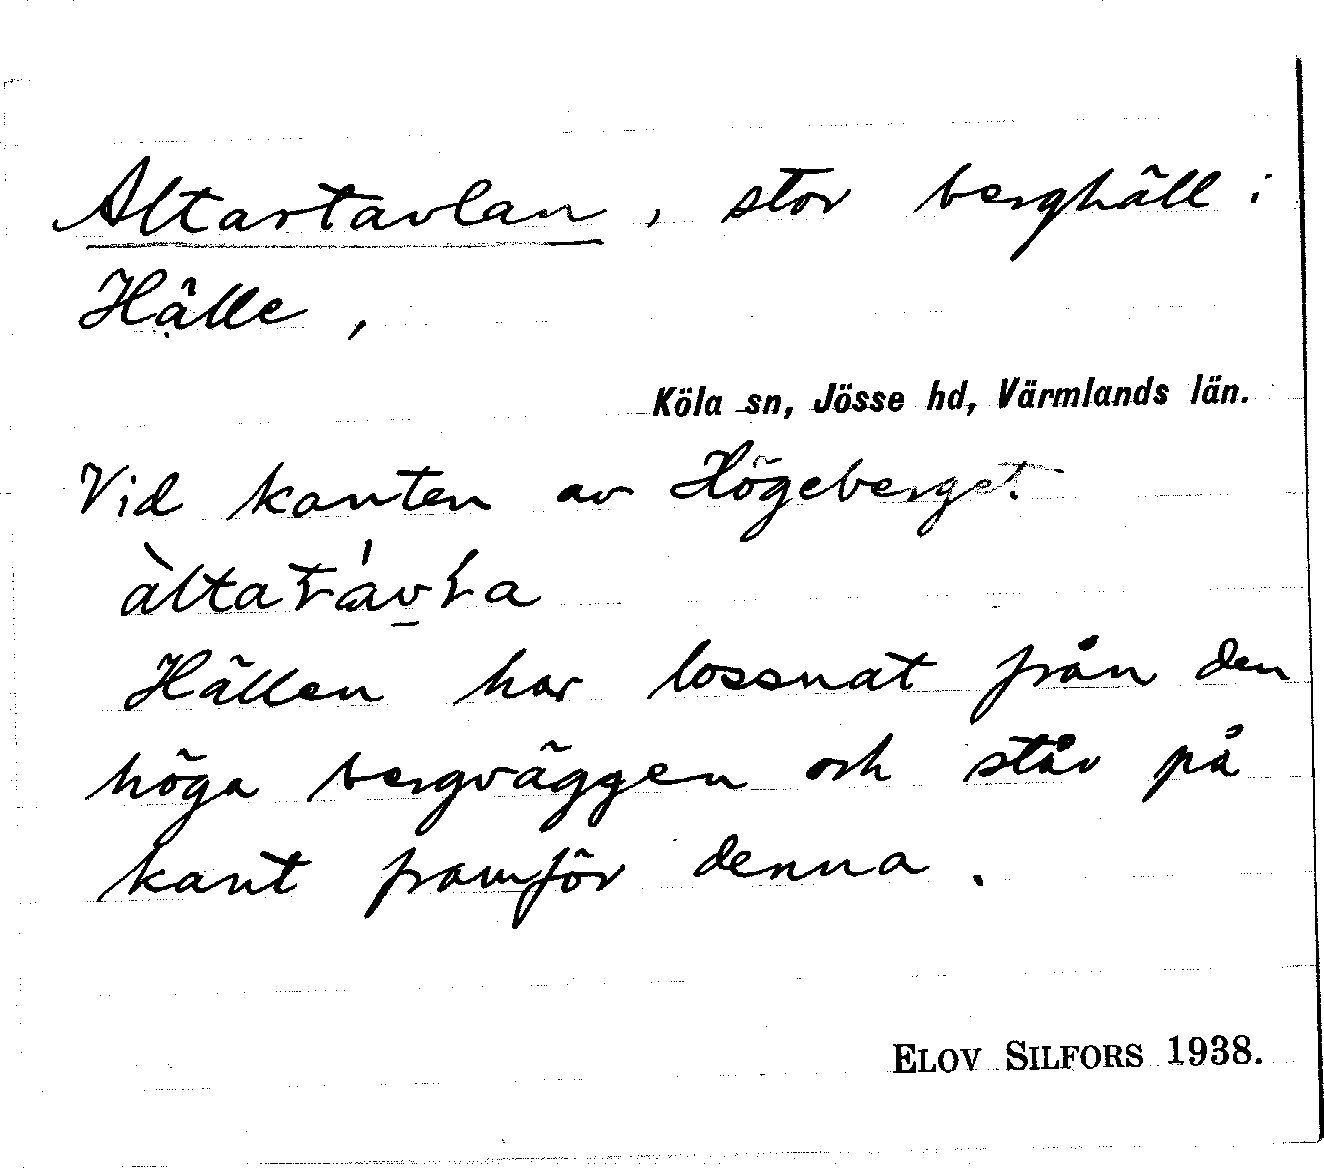 Altartavlan, stor berghäll i
Hälle,
Köla sn, Jösse hd, Värmlands län.
Vid kanten av Högeberget.
Hällen har lossnat från den
höga bergväggen och står på
kant framför denna.
ELOV SILFORS 1938.